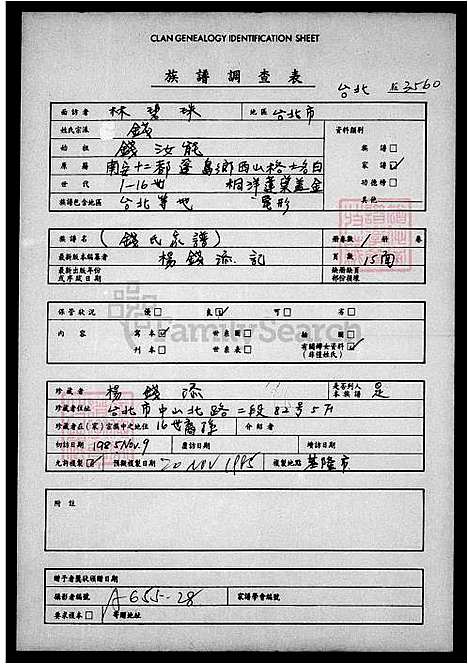 CLAN GENEALOGY IDENTIFICATION SHEET
族譜調查表
台北 3560
面訪者 林碧珠 地區 台北市
姓氏宗派 錢 資料類別
始祖 錢汝能 族譜 □
原籍 南安十二都蓬島鄉西山格 家譜 ☑
世代 1-16世 功德榜 □
族譜包含地區 台北等地 其他
族譜名 (錢氏家譜) 冊卷數 1 冊 卷
最新版本編纂者 楊錢添記 頁數 15面
最新出版年份或序跋日期 缺冊缺頁部份損壞
保管狀況 優 □ 良 ☑ 可 □ 劣 □
內容 寫本 ☑ 世系 □ 插圖 □
刊本 □ 世表 □ 有關婦女資料 (非僅姓氏)
FamilySearch
珍藏者 楊錢添 是否列入本族譜 是
珍藏者住址 台北市中山北路二段82号5F1
珍藏者在(家)宗族中之地位 16世裔孫 介紹者
初訪日期 1985 Nov. 9 應訪日期 增訪日期
允許複製 ☑ 預擬複製日期 20 NOV 1985 複製地點 基隆市
附註
贈予者獎狀頒贈日期
攝影者編號 A-655-28 家譜學會編號
要求複本 □ 寄贈地址